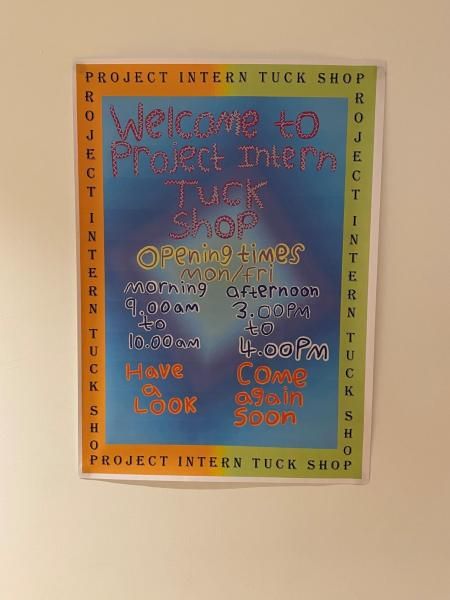 PROJECT INTERN TUCK SHOP
PROJECT INTERN TUCK SHOP
PROJECT INTERN TUCK SHOP
Welcome to
Project Intern
Tuck
Shop
Opening times
mon/fri
morning
9.00am
to
10.00am
afternoon
3.00PM
to
4.00PM
Have
a
LOOK
Come
again
soon
PROJECT INTERN TUCK SHOP